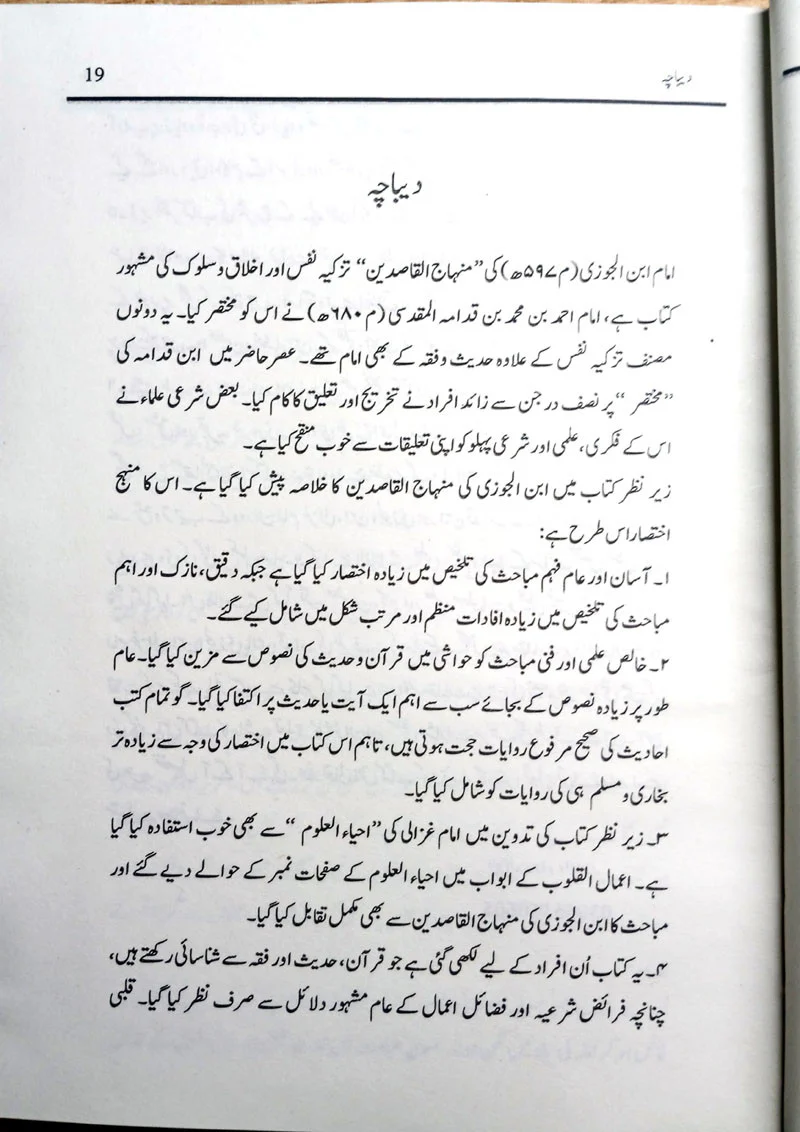 دیباچہ
19
دیباچہ
امام ابن الجوزی (م ۵۹۷ھ) کی ”منہاج القاصدین“ تزکیہ نفس اور اخلاق و سلوک کی مشہور
کتاب ہے، امام احمد بن محمد بن قدامہ المقدسی (م ۶۸۰ھ) نے اس کو مختصر کیا۔ یہ دونوں
مصنف تزکیہ نفس کے علاوہ حدیث و فقہ کے بھی امام تھے۔ عصر حاضر میں ابن قدامہ کی
”مختصر“ پر نصف درجن سے زائد افراد نے تخریج اور تعلیق کا کام کیا۔ بعض شرعی علماء نے
اس کے فکری، علمی اور شرعی پہلو کو اپنی تعلیقات سے خوب منقح کیا ہے۔
زیر نظر کتاب میں ابن الجوزی کی منہاج القاصدین کا خلاصہ پیش کیا گیا ہے۔ اس کا منہج
اختصار اس طرح ہے:
۱۔ آسان اور عام فہم مباحث کی تلخیص میں زیادہ اختصار کیا گیا ہے جبکہ دقیق، نازک اور اہم
مباحث کی تلخیص میں زیادہ افادات منظم اور مرتب شکل میں شامل کیے گئے۔
۲۔ خالص علمی اور فنی مباحث کو حواشی میں قرآن و حدیث کی نصوص سے مزین کیا گیا۔ عام
طور پر زیادہ نصوص کے بجائے سب سے اہم ایک آیت یا حدیث پر اکتفا کیا گیا۔ گو تمام کتب
احادیث کی صحیح مرفوع روایات حجت ہوتی ہیں، تاہم اس کتاب میں اختصار کی وجہ سے زیادہ تر
بخاری و مسلم ہی کی روایات کو شامل کیا گیا۔
۳۔ زیر نظر کتاب کی تدوین میں امام غزالی کی ”احیاء العلوم“ سے بھی خوب استفادہ کیا گیا
ہے۔ اعمال القلوب کے ابواب میں احیاء العلوم کے صفحات نمبر کے حوالے دیے گئے اور
مباحث کا ابن الجوزی کی منہاج القاصدین سے بھی مکمل تقابل کیا گیا۔
۴۔ یہ کتاب اُن افراد کے لیے لکھی گئی ہے جو قرآن، حدیث اور فقہ سے شناسائی رکھتے ہیں،
چنانچہ فرائض شرعیہ اور فضائل اعمال کے عام مشہور دلائل سے صرف نظر کیا گیا۔ قلبی